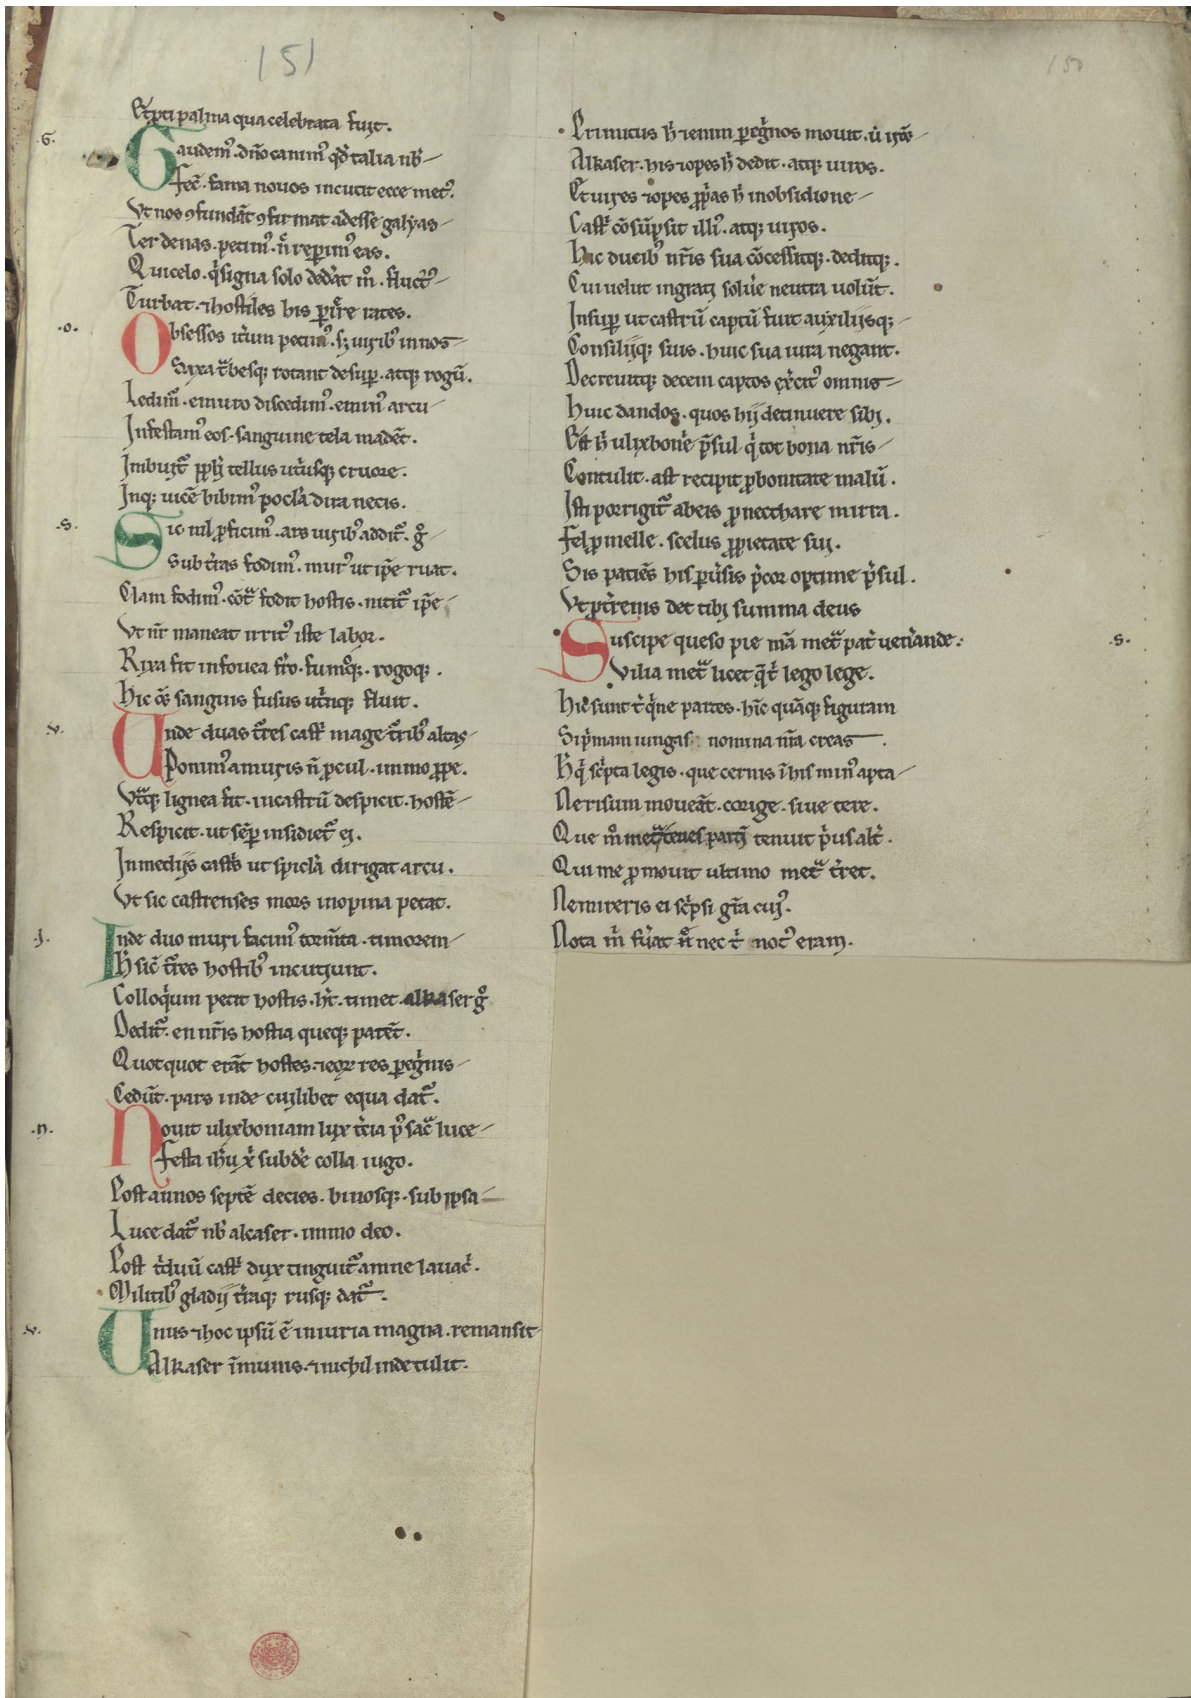 151
150
Et p̄ti palma qua celebrata fuit.
.G.
Gaudem᷒. dn̄o canim᷒ qđ talia nb̄
Fec̄. fama novos incutit ecce met᷒.
Vt nos ꝯfundāt ꝯfirmat adesse galyas
Ter denas. petim᷒. n̄ reperim᷒ eas.
Qui celo. q̄ signa solo dedat m̊. fluct᷒
Turbat. ⁊ hostiles his perire rates.
.o.
Obsessos iťum petim᷒. sꝫ virib᷒ in nos
Saxa t̄besqꝫ rotant desuꝑ. atqꝫ rogū.
Ledim᷒. e muro discedim᷒. emin᷒ arcu
Infestam᷒ eos. sanguine tela madēt.
Imbuit᷑ ꝓlꝫ tellus ut̓usqꝫ cruore.
Inqꝫ vicē bibim᷒ pocla dira necis.
.s.
Sic nil ꝓficim᷒. ars virib᷒ addit᷑. g̊
Sub t̓ras fodim᷒. mur᷒ ut ip̄e ruat.
Clam fodim᷒. cōtᷓ fodit hostis. nitit᷑ ip̄e
Vt nr̄ maneat irrit᷒ iste labor.
Rixa fit in fovea fr̄o. fumoqꝫ. rogoqꝫ.
Hic &̄ sanguis fusus utrinqꝫ fluit.
.v.
Unde duas t̄res castꝭ mage t̄rib᷒ altas
Ponim᷒ a muris n̄ ꝓcul. immo ꝓpe.
Vtᷓqꝫ lignea fit. in castrū despicit. hostē
Respicit. ut sēꝑ insidiet᷑ ei.
In mediis castꝭ ut spicla dirigat arcu.
Vt sic castrenses mors inopina petat.
.J.
Inde duo muri facim᷒ torm̄ta. timorem
H̄ sic̄ t̄res hostib᷒ incutiunt.
Colloq̓um petit hostis. hꝫ. timet. alkaser g̊
Dedit᷑. en nr̄is hostia queqꝫ patēt.
Quotquot erāt hostes. ⁊ eoꝝ res ꝑeg̓nis
Cedūt. pars inde cuilibet equa dat᷑.
.n.
Novit ulixboniam lux t̓cia p᷒ sacᷓ luce
Festa ih̄u xp̄ı subde colla iugo.
Post annos septē decies. binosqꝫ. sub ipsa
Luce dat᷑ nb̄ alcaser. immo deo.
Post t̓duū castꝭ dux tinguit᷑ amne lavac̓.
Militib᷒ gladii t̓raqꝫ rusqꝫ dat᷑.
.v.
Unus ⁊ hoc ipsū ē iniuria magna. remansit
Alkaser īmunis. ⁊ nichil inde tulit.
Primitus h̄ ⁊ enim ꝑeg̓nos movit. ū
Alkaser. his ⁊ opes h̄ dedit. atqꝫ viros.
Et vires ⁊ opes ꝓp̓as h̄ in obsidione
Castꝭ cōsūpsit illi᷒. atqꝫ viros.
Hic ducib᷒ nr̄is sua cōcessitqꝫ. deditqꝫ.
Cui velut ingrati solue neutra volūt.
Insuꝑ ut castrū captū fuit auxiliisqꝫ
Consiliiqꝫ suis. huic sua iura negant.
Decrevitqꝫ decem captos ex̓cit᷒ omnis
Huic dandos. quos hii detinuere sibi.
Est h̄ ulixbon̄e p̄sul q̓ tot bona nr̄is
Contulit. ast recipit ꝓ bonitate malū.
Isti porrigit᷑ ab eis ꝓ necthare mirra.
Fel ꝓ melle. scelus ꝓ pietate sui.
Sis patiēs his ꝑv̓sis p̓cor optime p̄sul.
Vt ꝓ t̓renis det tibi summa deus
.s.
Suscipe queso pie mā metᷓ pat̓ ven̓ande.
Vilia metᷓ licet q̄ t̓ lego lege.
Hic sunt t̓ q̓ne partes. hīc quāqꝫ figuram
Si p̓mam iungas nomina n̄ra creas.
H̄ q̄ sc̓pta legis. que cernis ī his min᷒ apta
Ne risum moveāt. corige. sive tere.
Que m̊ tenuit p̓us alt̓.
Qui me ꝓmovit ultimo metᷓ t̓ret.
Ne mireris ei sc̓psi gr̄a cui᷒.
Nota m̄ fuat n̊ nec t̓ not᷒ eram.